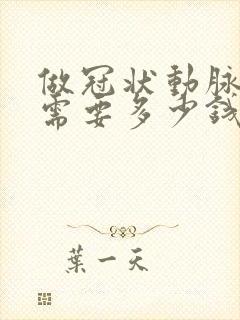 做冠状動脉
需要多少錢
葉一天